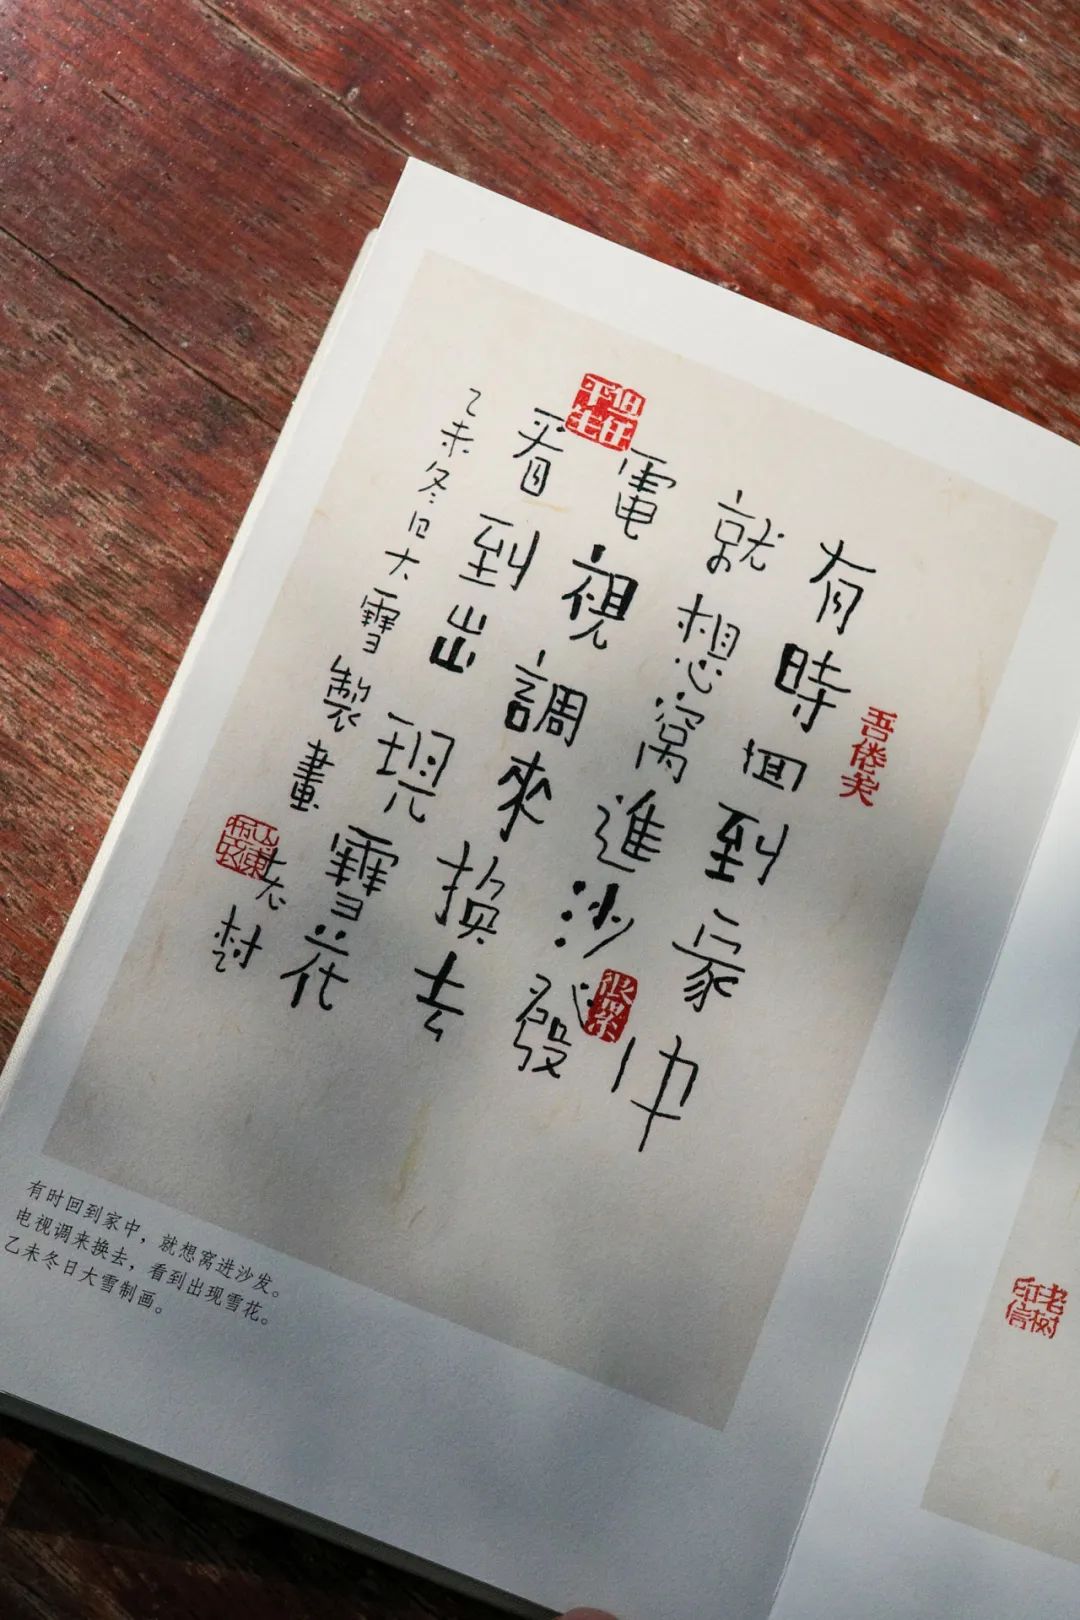 有時回到家中
吾倦矣
就想窩進沙發
很累
電視調來換去
看到出現雪花
乙未冬日大雪製畫
老树
有时回到家中，就想窝进沙发。
电视调来换去，看到出现雪花。
乙未冬日大雪制画。
老树印信